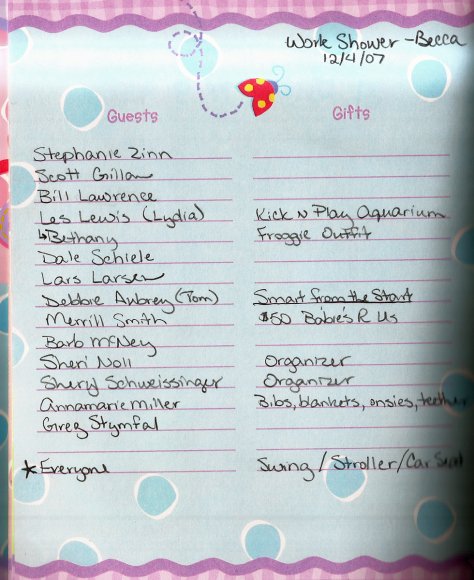 Work Shower - Becca
12/4/07
Guests Gifts
Stephanie Zinn
Scott Gillan
Bill Lawrence
Les Lewis (Lydia) Kick N Play Aquarium
↳Bethany Froggie Outfit
Dale Schiele
Lars Larsen
Debbie Aubrey (Tom) Smart from the Start
Merrill Smith $50 Babies R Us
Barb McNey
Sheri Noll Organizer
Sheryl Schweissinger Organizer
Annamarie Miller Bibs, blankets, onsies, teether
Greg Stymfal
*Everyone Swing / Stroller / Car Seat